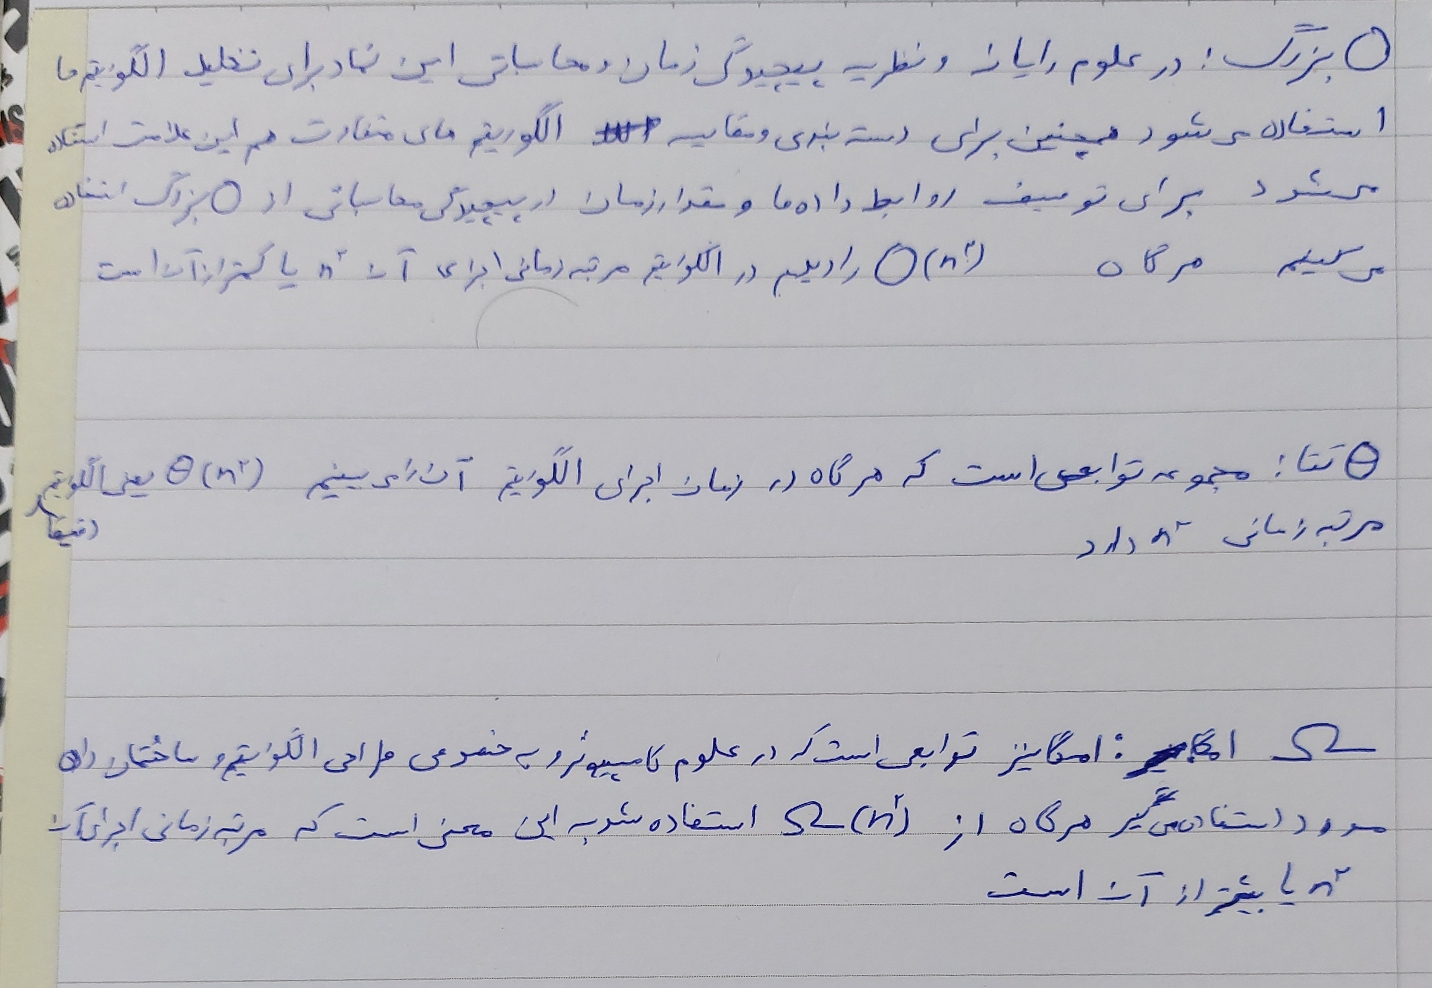 O بزرگ : در علوم رایانه و نظریه پیچیدگی زمان و محاسباتی این نماد برای تحلیل الگوریتم ها
استفاده می شود همچنین برای دسته بندی و مقایسه الگوریتم های متفاوت هم این علامت استفاده
می شود برای توصیف روابط داده ها و مقدار زمان از پیچیدگی محاسباتی از O بزرگ استفاده
می کنیم هرگاه O(n²) را دیدیم در الگوریتم مرتبه زمانی اجرای آن n² یا کمتر از آن است
θ تتا : مجموعه توابعی است که هرگاه در زمان اجرای الگوریتم آن را می بینیم θ(n²) یعنی الگوریتم دقیقا
مرتبه زمانی n² دارد
Ω امگا : امگا نیز توابعی است که در علوم کامپیوتر و به خصوص طراحی الگوریتم و ساختمان داده
مورد استفاده می گیر هرگاه از Ω(n²) استفاده شد به این معنی است که مرتبه زمانی اجرای آن
n² یا بیشتر از آن است